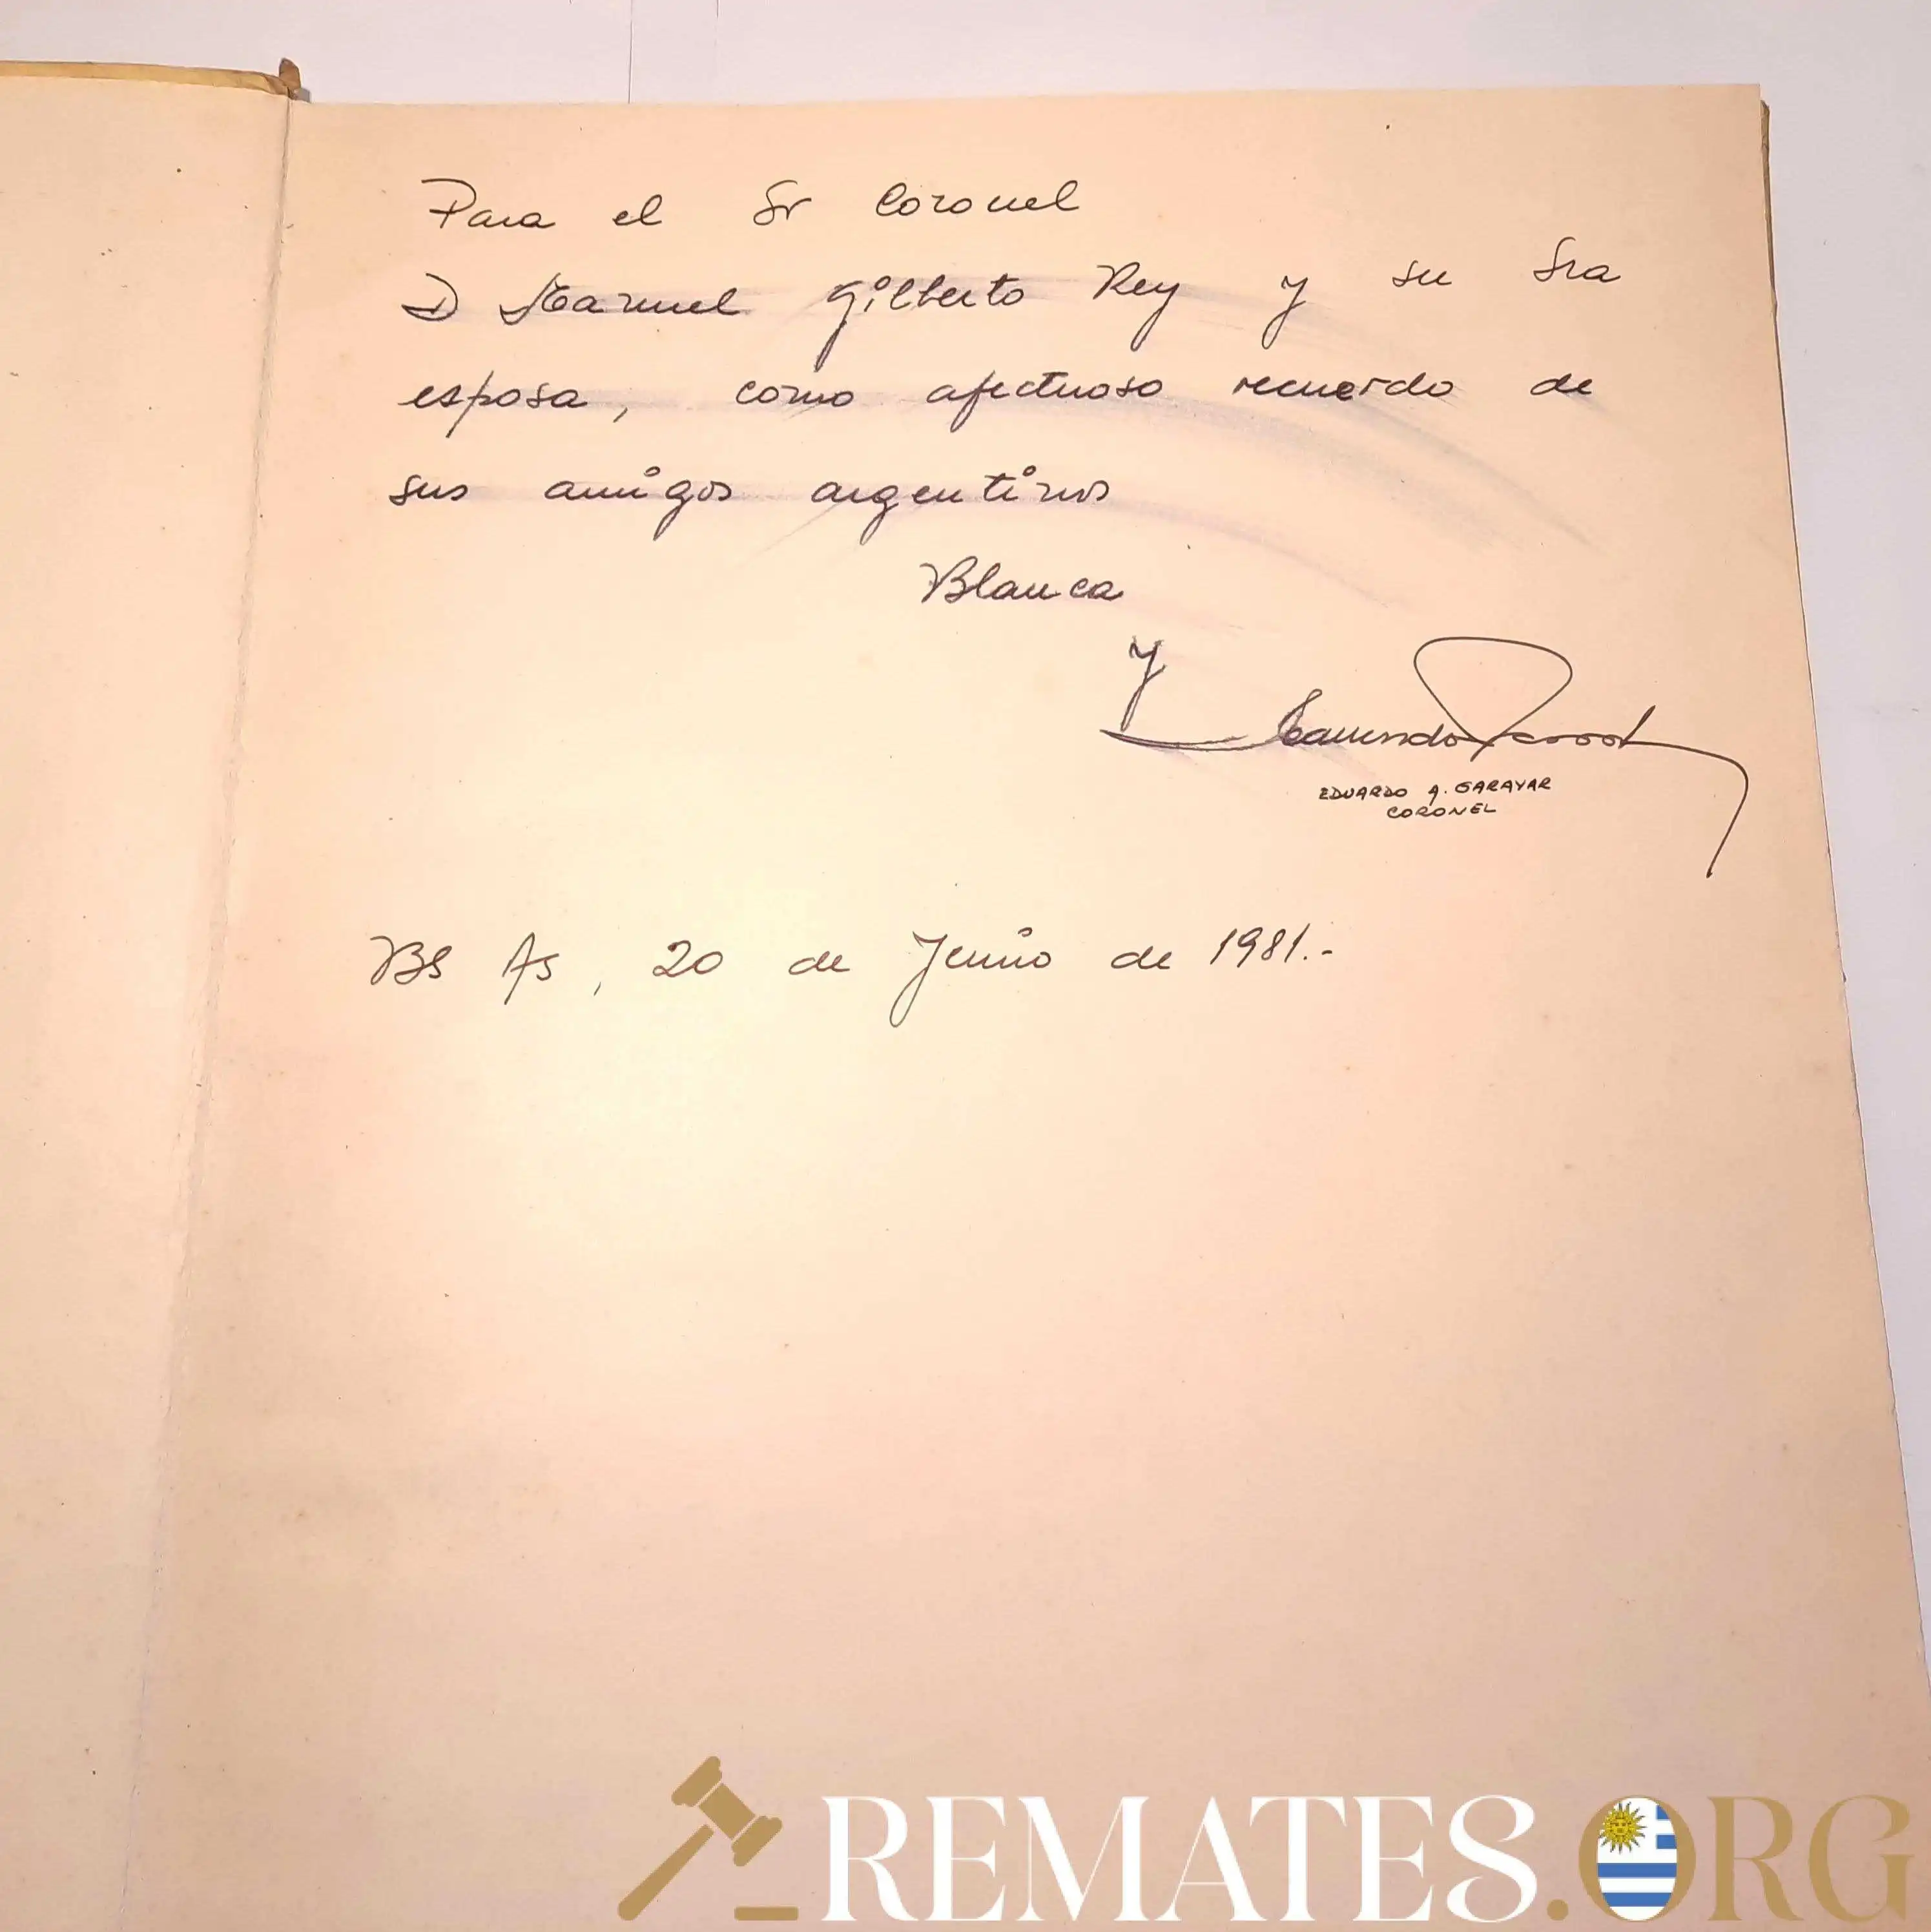 Para el Sr Coronel
D Manuel Gilberto Rey y su Sra
esposa, como afectuoso recuerdo de
sus amigos argentinos
Blanca
y
EDUARDO A. GARAYAR
CORONEL
Bs As, 20 de Junio de 1981.-
REMATES.ORG